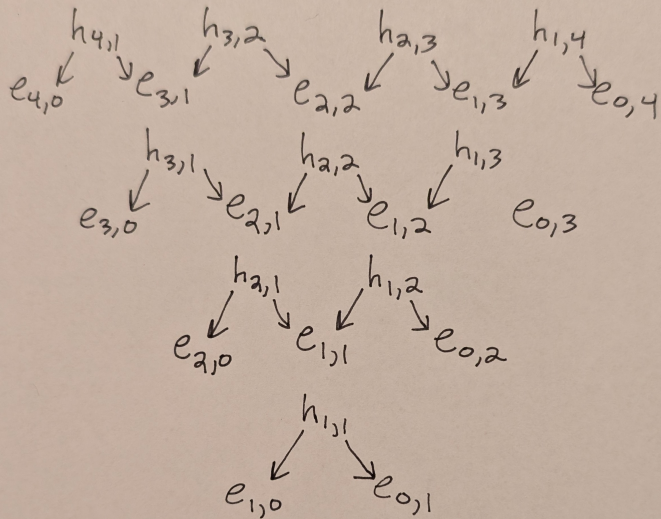 h4,1 h3,2 h2,3 h1,4
e4,0 e3,1 e2,2 e1,3 e0,4
h3,1 h2,2 h1,3
e3,0 e2,1 e1,2 e0,3
h2,1 h1,2
e2,0 e1,1 e0,2
h1,1
e1,0 e0,1